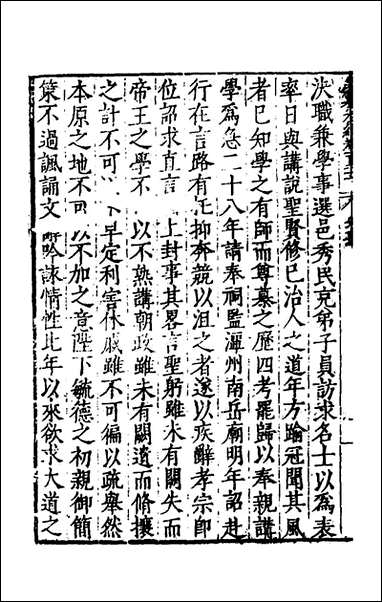 決職兼學事選邑秀民充弟子員訪求名士以為表
率日與講說聖賢修己治人之道年方踰冠聞其風
者已知學之有師而尊慕之歷四考罷歸以奉親講
學為急二十八年請奉祠監潭州南岳廟明年詔赴
行在言路有托抑奔競以沮之者遂以疾辭孝宗即
位詔求直言上封事其畧言聖躬雖未有闕失而
帝王之學不以不熟講朝政雖未有闕遺而脩攘
之計不可早定利害休戚雖不可徧以疏舉然
本原之地不可以不加之意陛下毓德之初親御簡
策不過諷誦文吟詠情性比年以來欲求大道之